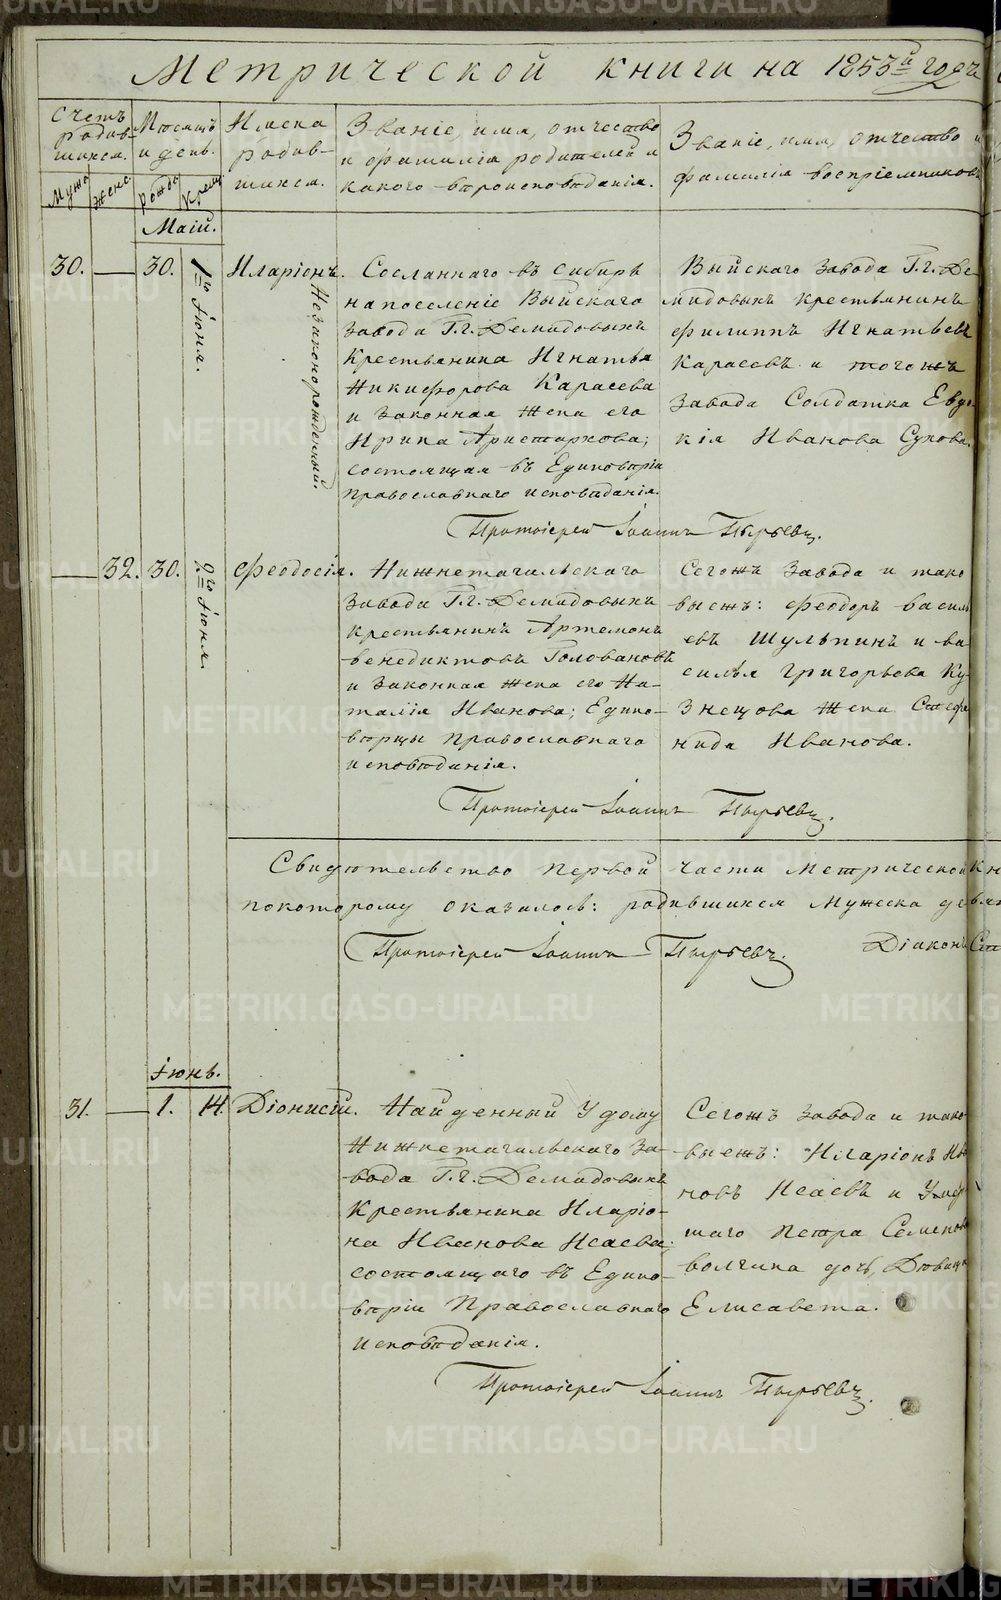 Метрической книги на 1853й годъ
Счетъ родив-шихся.
Мужс
женс
Мѣсяцъ и день.
рожд.
Крещ
Имена родив-шихся.
Званіе, имя, отчество
и фамилія родителей и
какого вѣроисповѣданія.
Званіе, имя, отчество и
фамилія воспріемниковъ
Маій.
30. 30. 1го іюня. Иларіонъ.
Незаконорожденный.
Сосланнаго въ Сибирь
на поселеніе Выйскаго
завода Г.г. Демидовыхъ
крестьянина Игнатья
Никифорова Карасева
и законная жена его
Ирина Аристархова;
состоящая въ Единовѣріи
православнаго исповѣданія.
Выйскаго завода Г.г. Де-
мидовыхъ крестьянинъ
Филиппъ Игнатьевъ
Карасевъ и тогожъ
завода Солдатка Евдо-
кія Иванова Сухова.
Протоіерей Іоаннъ Пырьевъ.
32. 30. 9го іюня. Феодосія.
Нижнетагильскаго
завода Г.г. Демидовыхъ
крестьянинъ Артемонъ
Венедиктовъ Головановъ
и законная жена его На-
талія Иванова; Едино-
вѣрцы православнаго
исповѣданія.
Сегожъ завода и тако
выежъ: Феодоръ Василь
евъ Шульпинъ и Ва
силья Григорьева Ку
знецова жена Стефа
нида Иванова.
Протоіерей Іоаннъ Пырьевъ.
Свидѣтельство первой части Метрической кн
по которому оказалось: родившихся Мужеска де
Протоіерей Іоаннъ Пырьевъ. Діаконъ
Іюнь.
31. 1. 14. Діонисій.
Найденный у дому
Нижнетагильскаго за-
вода Г.г. Демидовыхъ
крестьянина Иларіо-
на Иванова Исаева;
состоящаго въ Едино-
вѣріи Православнаго
исповѣданія.
Сегожъ завода и тако
выежъ: Иларіонъ Ива
новъ Исаевъ и Умер
шаго Петра Семенова
Волгина дочь, Дѣвица
Елисавета.
Протоіерей Іоаннъ Пырьевъ.
METRIKI.GASO-URAL.RU